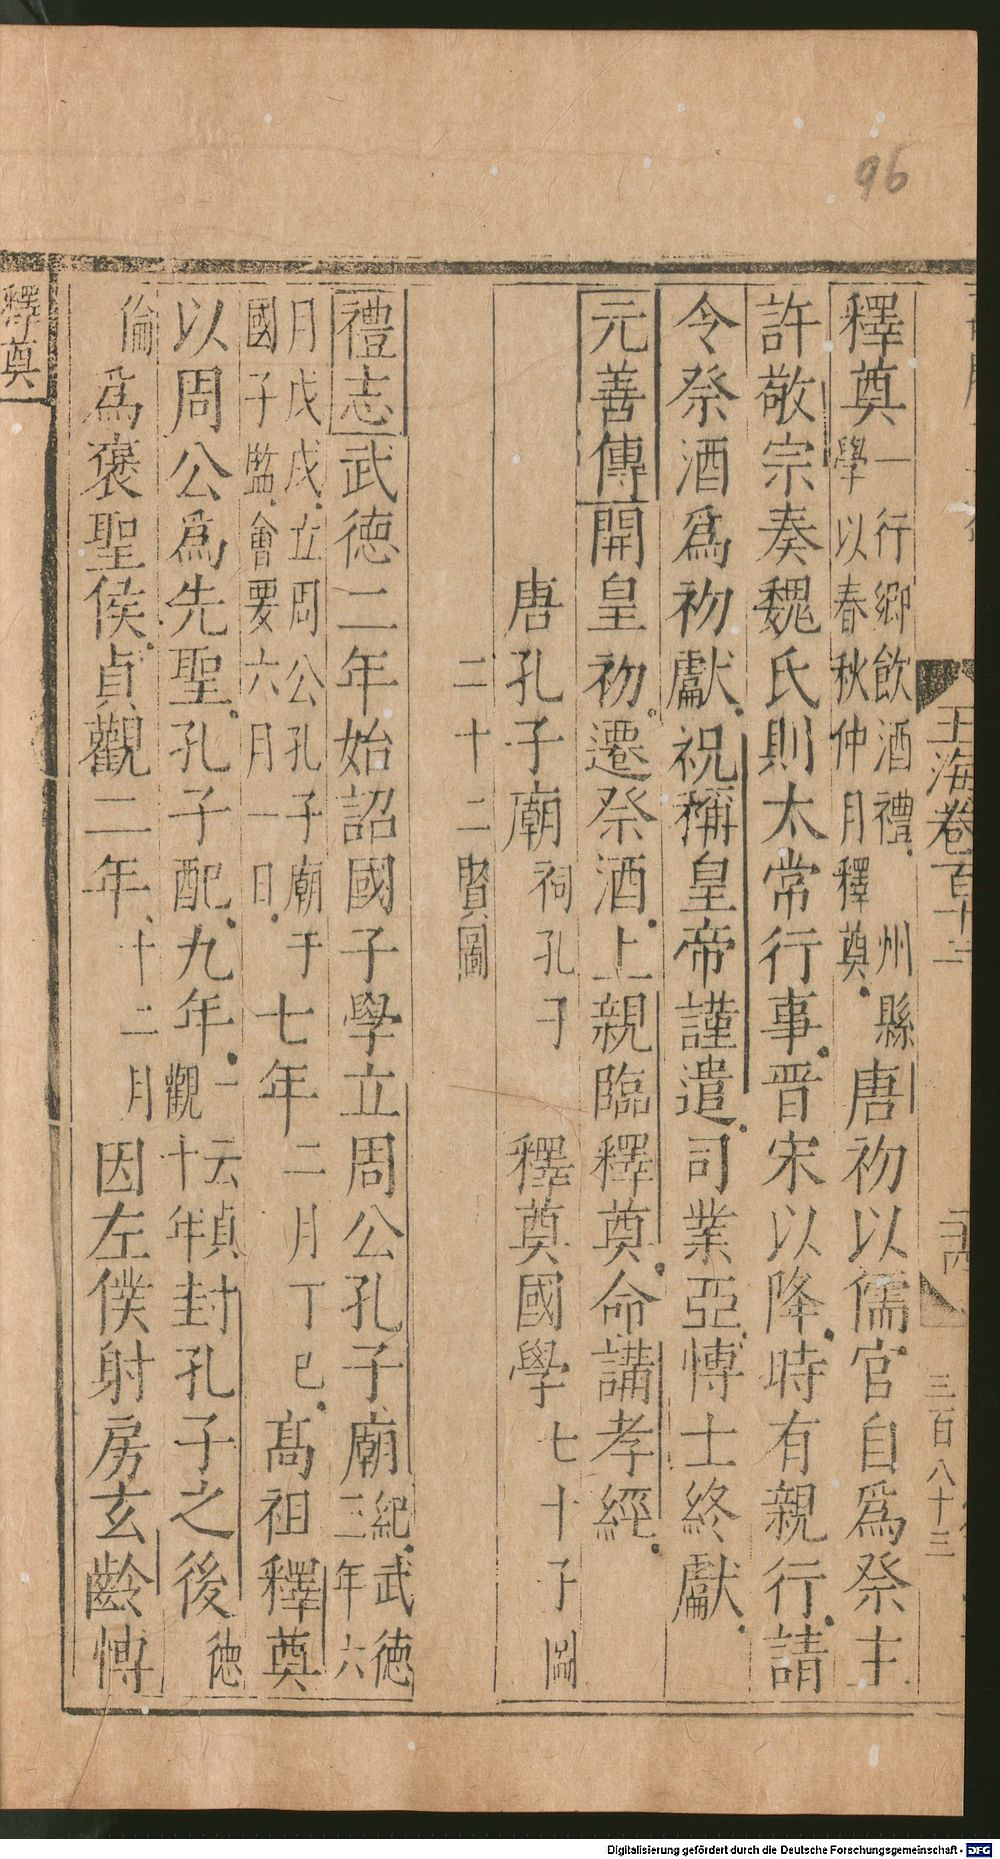 96
玉海卷百十三
三百八十三
釋奠一行鄉飲酒禮州縣學以春秋仲月釋奠唐初以儒官自為祭主
許敬宗奏魏氏則太常行事晋宋以降時有親行請
令祭酒爲初獻祝稱皇帝謹遣司業亞博士終獻
元善傳開皇初遷祭酒上親臨釋奠命講孝經
唐孔子廟祠孔子 釋奠國學七十子圖
二十二賢圖
禮志武徳二年始詔國子學立周公孔子廟紀武徳二年六
月戊戌立周公孔子廟于國子監會要六月一日七年二月丁巳高祖釋奠
以周公爲先聖孔子配九年一云貞觀十年封孔子之後徳
倫爲褒聖侯貞觀二年十二月因左僕射房玄齡博
釋奠
Digitalisierung gefördert durch die Deutsche Forschungsgemeinschaft - DFG